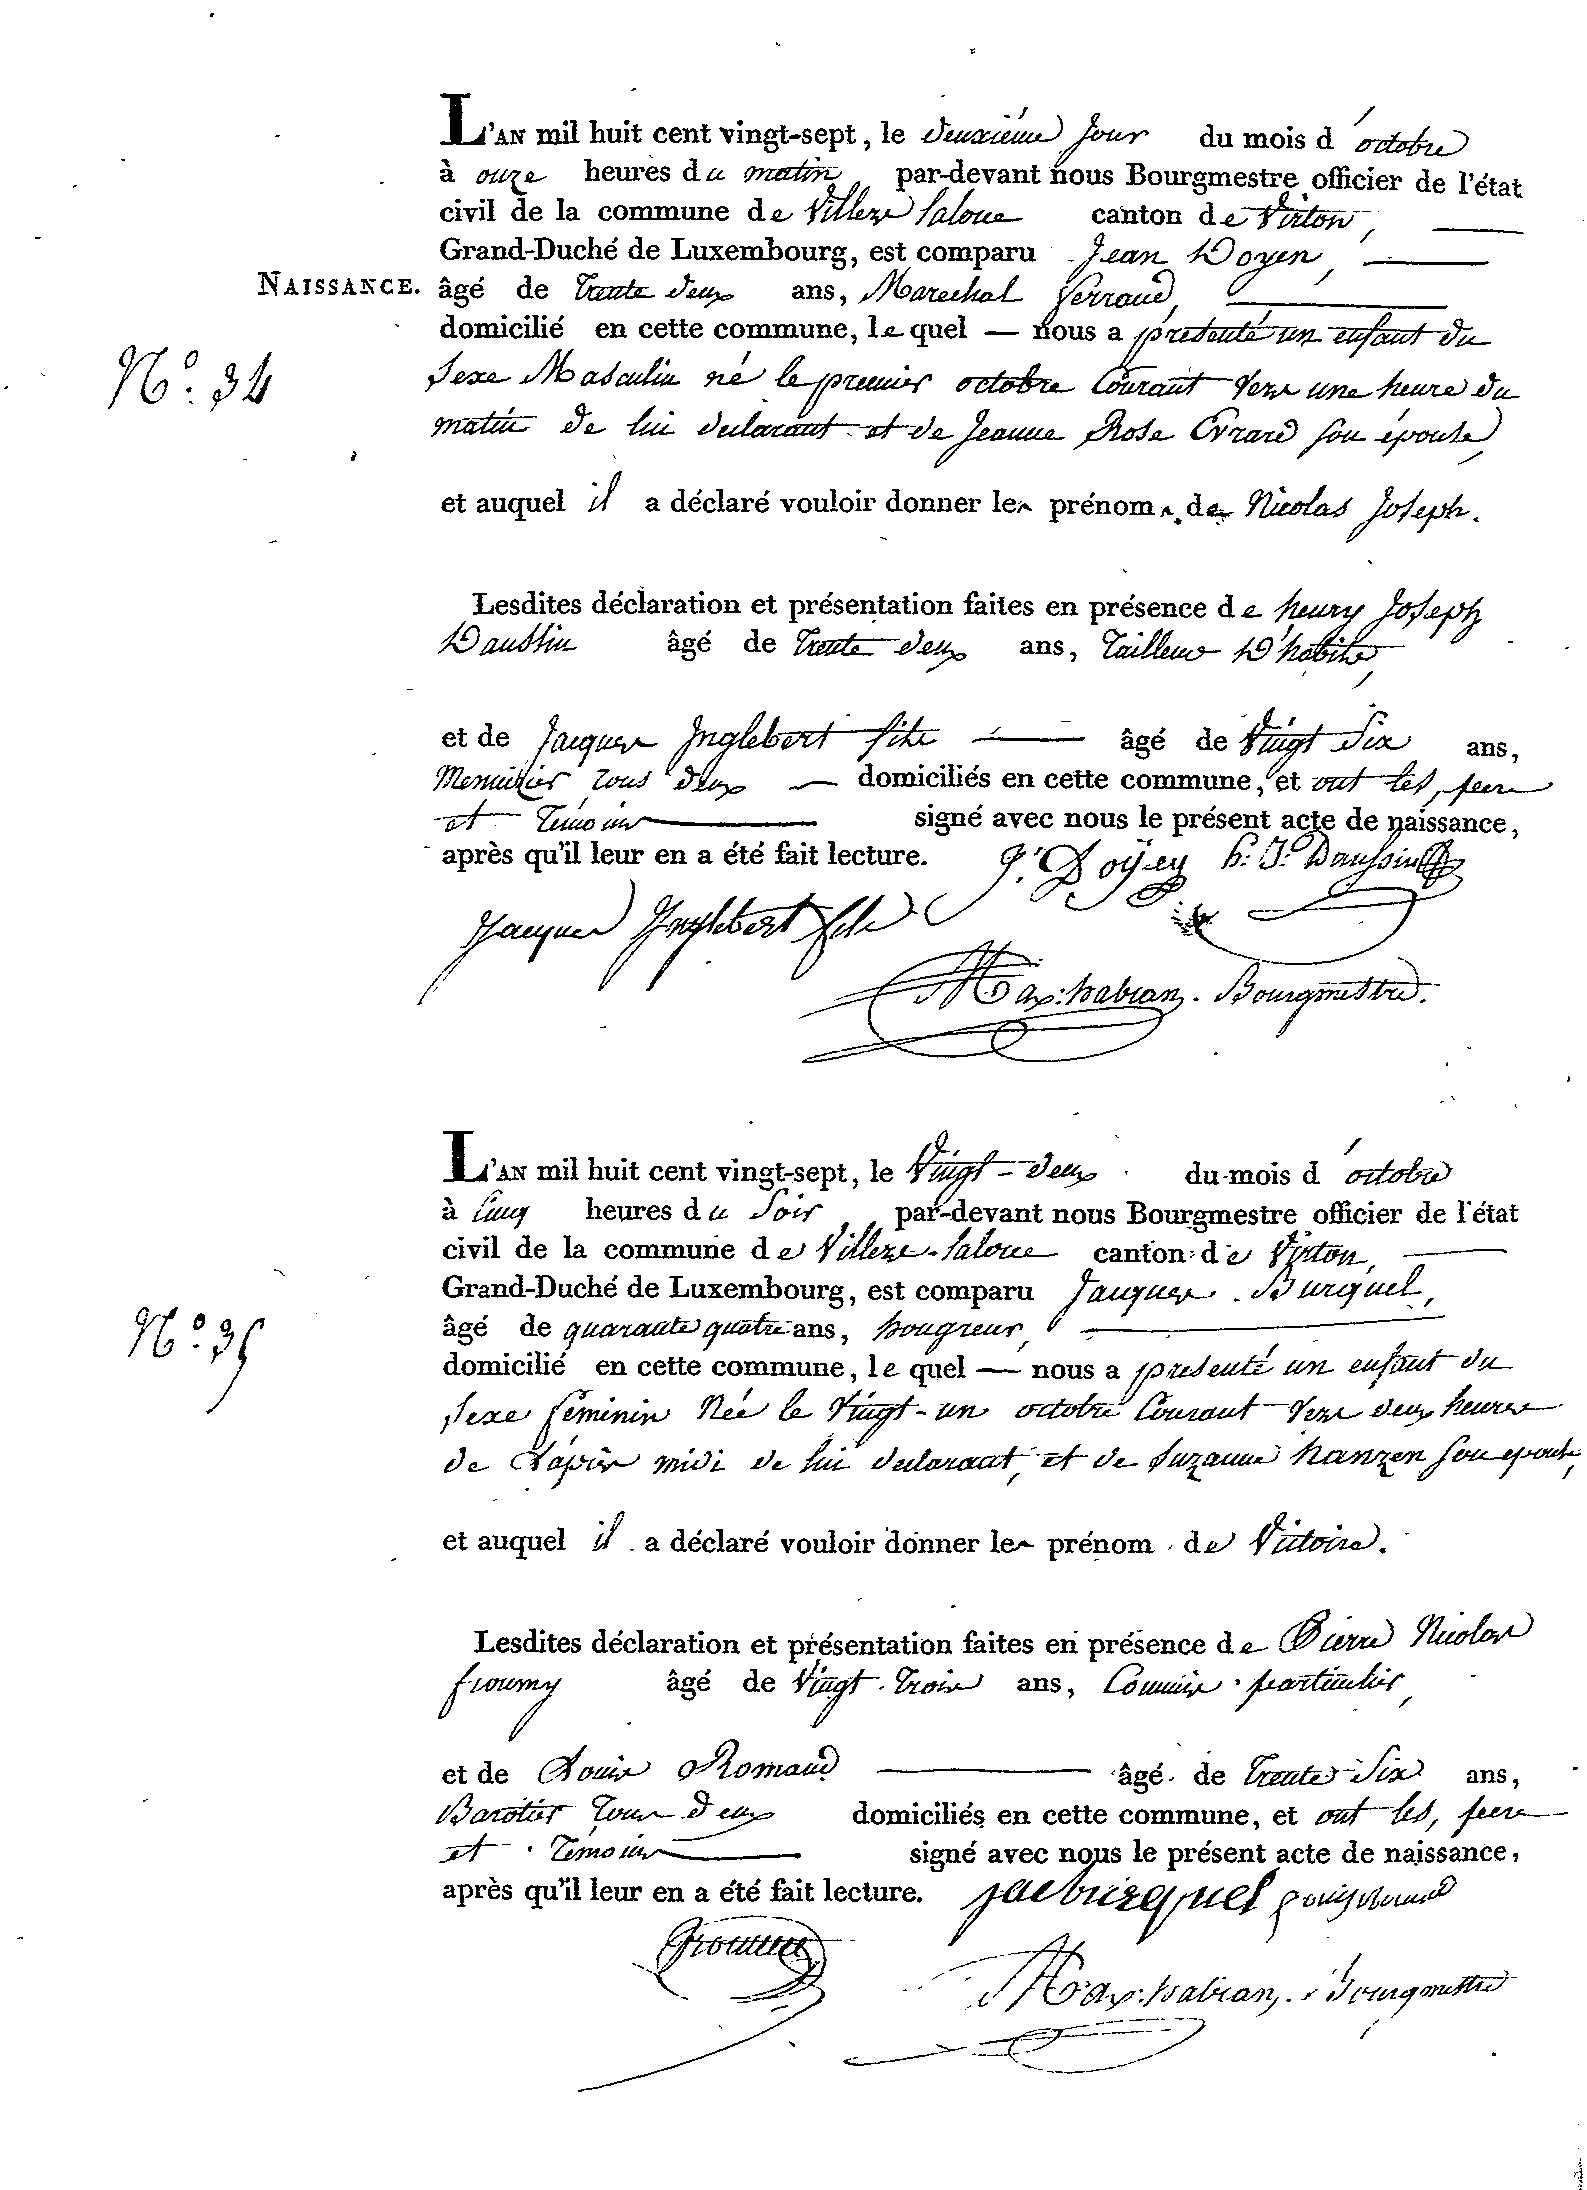 L'AN mil huit cent vingt-sept, le deuxiéme Jour du mois d'octobre
à onze heures du matin, par-devant nous Bourgmestre officier de l'état
civil de la commune de Villers Laloue canton de Virton,
Grand-Duché de Luxembourg, est comparu Jean Doyen,
NAISSANCE. âgé de trente deux ans, Marechal ferrand,
domicilié en cette commune, le quel — nous a presenté un enfant du
N.o 34
Sexe Masculin né le premier octobre Courant vers une heure du
matin de lui declarant et de Jeanne Rose Evrard son épouse,
et auquel il a déclaré vouloir donner les prénoms de Nicolas Joseph.
Lesdites déclaration et présentation faites en présence de henry Joseph
Daussin âgé de trente deux ans, Tailleur D'habits,
et de Jacques Inglebert fils âgé de Vingt Six ans,
Menuisier tous deux — domiciliés en cette commune, et ont les, pere
et témoins signé avec nous le présent acte de naissance,
après qu'il leur en a été fait lecture. J. Doÿen h: J: Daussin
Jacques Inglebert fils
Max: habran. Bourgmestre.
L'AN mil huit cent vingt-sept, le Vingt-deux du mois d'octobre
à Cinq heures du Soir, par-devant nous Bourgmestre officier de l'état
civil de la commune de Villers-Laloue canton de Virton,
Grand-Duché de Luxembourg, est comparu Jacques Burquel,
N.o 35
âgé de quarante quatre ans, hougreur,
domicilié en cette commune, le quel — nous a presenté un enfant du
Sexe féminin Née le Vingt-un octobre Courant vers deux heures
de L'apès midi de lui declarant, et de Suzanne hanzen son epouse,
et auquel il a déclaré vouloir donner les prénom de Victoire.
Lesdites déclaration et présentation faites en présence de Pierre Nicolas
froumy âgé de Vingt-trois ans, Commis particulier,
et de Louis Romand âgé de trente Six ans,
Barotier tous deux domiciliés en cette commune, et ont les, pere
et témoins signé avec nous le présent acte de naissance,
après qu'il leur en a été fait lecture. jac burquel Louis Romand
Max: habran. Bourgmestre